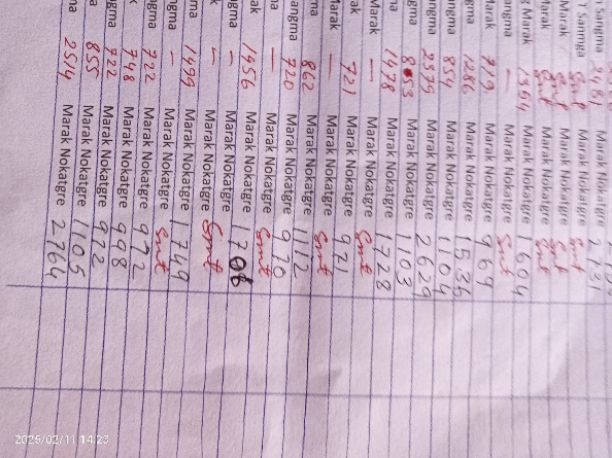 n Sangma 2481 Marak Nokatgre 2731
T Sanmga Smt Marak Nokatgre Smt
Marak Smt Marak Nokatgre Smt
Marak Smt Marak Nokatgre Smt
g Marak 1354 Marak Nokatgre 1604
angma — Marak Nokatgre Smt
Marak 719 Marak Nokatgre 969
ngma 1286 Marak Nokatgre 1536
gma 854 Marak Nokatgre 1104
angma 2379 Marak Nokatgre 2629
ngma 853 Marak Nokatgre 1103
ma 1478 Marak Nokatgre 1728
Marak — Marak Nokatgre Smt
ak 721 Marak Nokatgre 971
Marak — Marak Nokatgre Smt
ngma 862 Marak Nokatgre 1112
Sangma 720 Marak Nokatgre 970
a — Marak Nokatgre Smt
ak 1456 Marak Nokatgre 1706
ngma — Marak Nokatgre
angma — Marak Nokatgre Smt
ngma 1499 Marak Nokatgre 1749
ma — Marak Nokatgre Smt
ngma 722 Marak Nokatgre 972
k 748 Marak Nokatgre 998
ngma 722 Marak Nokatgre 972
a 855 Marak Nokatgre 1105
ma 2514 Marak Nokatgre 2764
2025/02/11 14:23